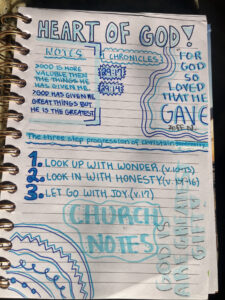 HEART OF GOD!
NOTES
GOOD IS MORE
VALUBLE THEN
THE THINGS HE
HAS GIVEN ME.
GOD HAS GIVEN ME
GREAT THINGS BUT
HE IS THE GREATEST
1 CHRONICLES
FOR
GOD
SO
LOVED
THAT HE
GAVE
The three step progression of christian
1. LOOK UP WITH WONDER (v.10-13)
2. LOOK IN WITH HONESTY (v.14-16)
3. LET GO WITH JOY (v.17)
CHURCH
NOTES